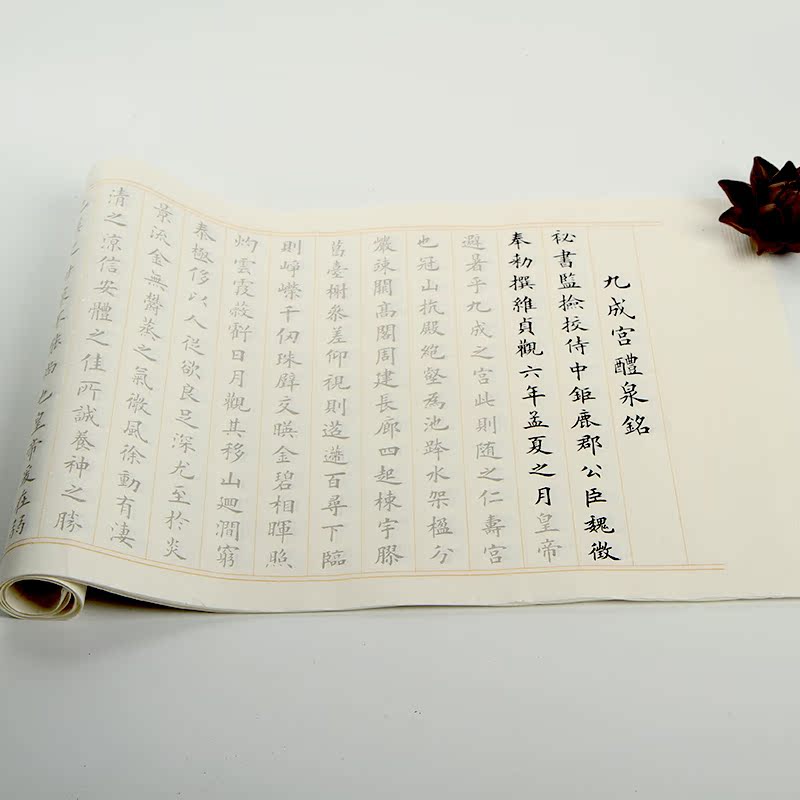 九成宮醴泉銘
秘書監撿挍侍中鉅鹿郡公臣魏徵
奉勑撰維貞觀六年孟夏之月皇帝
避暑乎九成之宮此則随之仁壽宮
也冠山抗殿絶壑為池跨水架楹分
巖竦闕高閣周建長廊四起棟宇膠
葛臺榭叅差仰視則迢遰百尋下臨
則崢嶸千仞珠璧交暎金碧相暉照
灼雲霞蔽虧日月觀其移山迴澗窮
泰極侈以人従欲良足深尤至於炎
景流金無欝蒸之氣微風徐動有凄
清之涼信安體之佳所誠養神之勝
皇帝